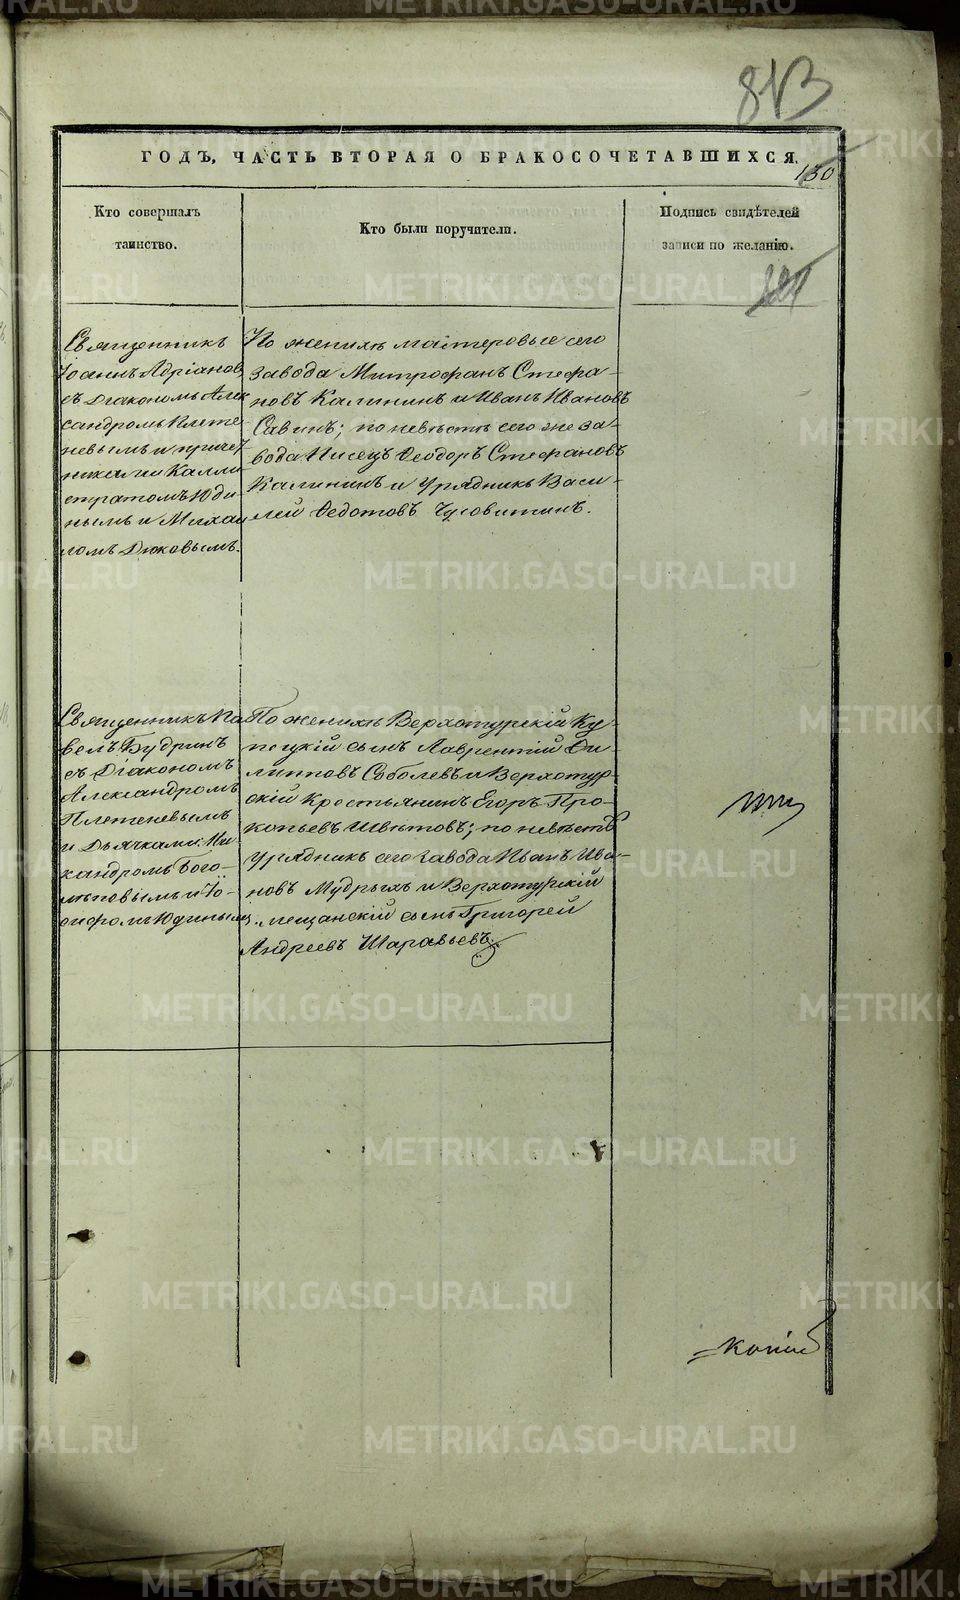 813
ГОДЪ, ЧАСТЬ ВТОРАЯ О БРАКОСОЧЕТАВШИХСЯ.
130
Кто совершалъ
таинство.
Кто были поручители.
Подпись свидѣтелей
записи по желанію.
Священникъ
Іоаннъ Адріановъ
съ Діакономъ Алек
сандромъ Плете-
невымъ и причет
никами Калли-
стратомъ Юди-
нымъ и Михаи
ломъ Дюковымъ.
По женихѣ мастеровые сего
завода Митрофанъ Стефа-
новъ Калининъ и Иванъ Ивановъ
Савинъ; по невѣстѣ сего же за-
вода Писецъ Ѳеодоръ Стефановъ
Калининъ и Урядникъ Васи-
лей Ѳедотовъ Чусовитинъ.
Священникъ Па
велъ Будринъ
съ Діакономъ
Александромъ
Плетеневымъ
и Дьячками: Ни
кандромъ Бого-
лѣповымъ и Іо-
сифомъ Юдинымъ
По женихѣ Верхотурскій Ку-
пецкій сынъ Лаврентій Фи-
липповъ Соболевъ и Верхотур-
скій Крестьянинъ Егоръ Про-
копьевъ Швѣтовъ; по невѣстѣ
Урядникъ сего завода Иванъ Ива-
новъ Мудрыхъ и Верхотурскій
мещанскій сынъ Григорей
Андреевъ Шаравьевъ.
METRIKI.GASO-URAL.RU